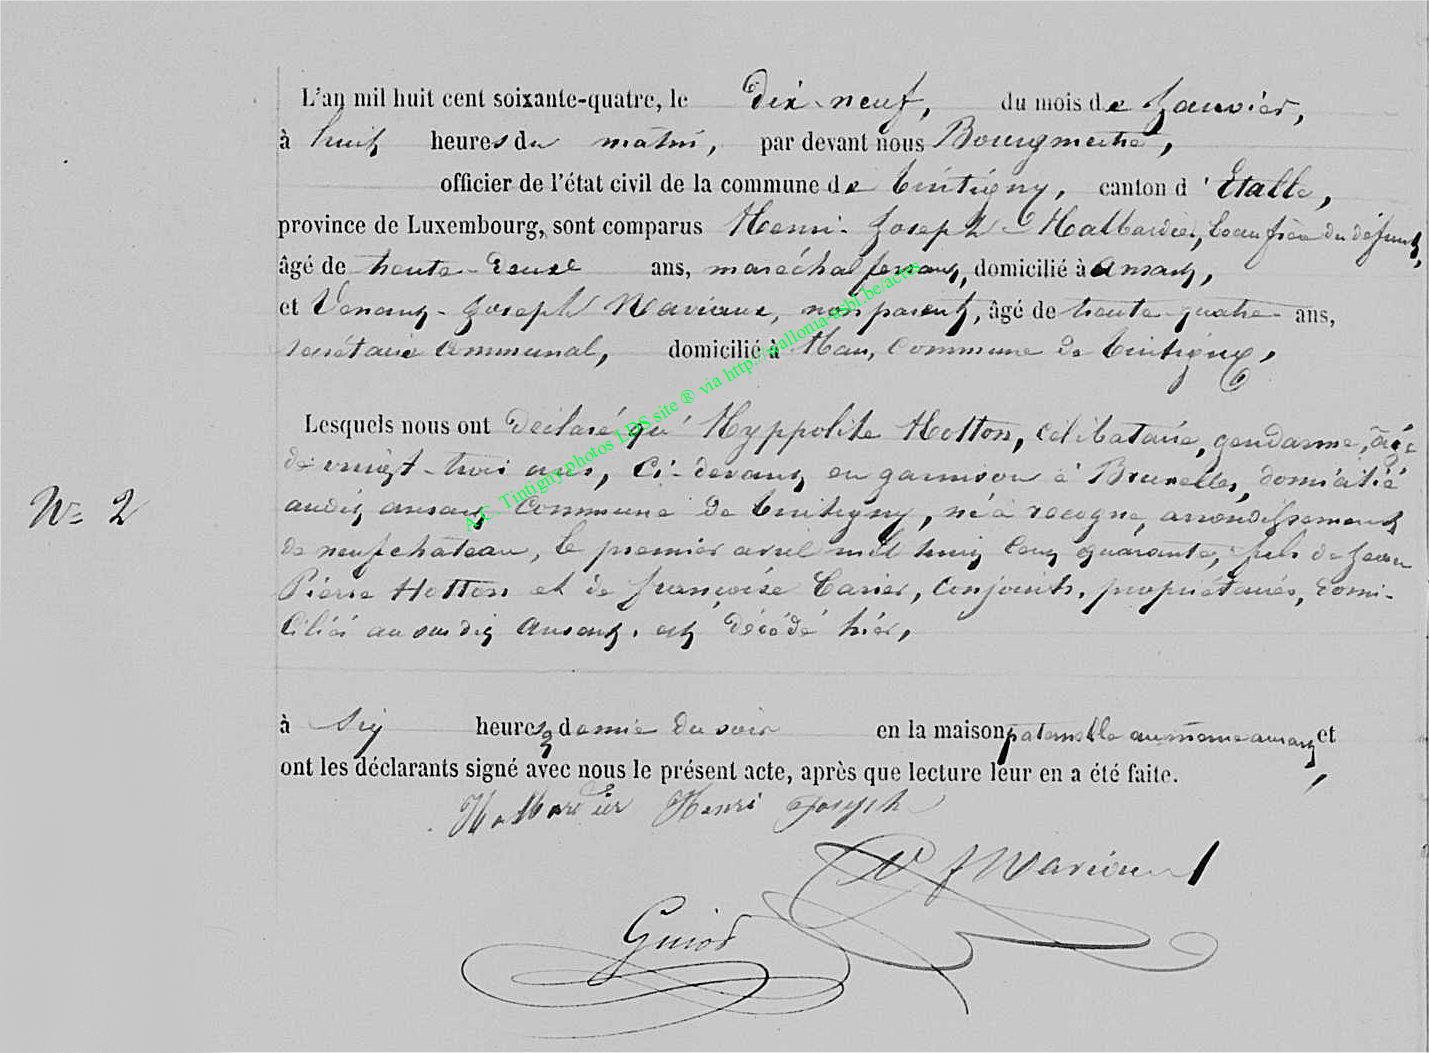 L'an mil huit cent soixante-quatre, le Dix-neuf, du mois de Janvier,
à huit heures du matin, par devant nous Bourgmestre,
officier de l'état civil de la commune de Tintigny, canton d'Etalle,
province de Luxembourg, sont comparus Henri-Joseph Halbardier, beau frère du défunt,
âgé de trente-deux ans, maréchal ferrant, domicilié à ansart,
et Venant-Joseph Maviaux, non parent, âgé de trente-quatre ans,
secrétaire communal, domicilié à Han, commune de Tintigny,
Lesquels nous ont déclaré qu'Hyppolite Hotton, célibataire, gendarme, âgé
de vingt-trois ans, ci-devant en garnison à Bruxelles, domicilié
N° 2
audit ansart commune de Tintigny, né à recogne, arrondissement
de neufchateau, le premier avril mil huit cent quarante, fils de Jean
Pierre Hotton et de françoise conjoints, propriétaires, domi-
ciliés au susdit Ansart, est décédé hier,
à six heures et demie du soir en la maison paternelle au même ansart, et
ont les déclarants signé avec nous le présent acte, après que lecture leur en a été faite.
Halbardier Henri Joseph
V J Maviaux
Guiot
A.C. Tintigny photos LDS site ® via http://wallonia-asbl.be/actes